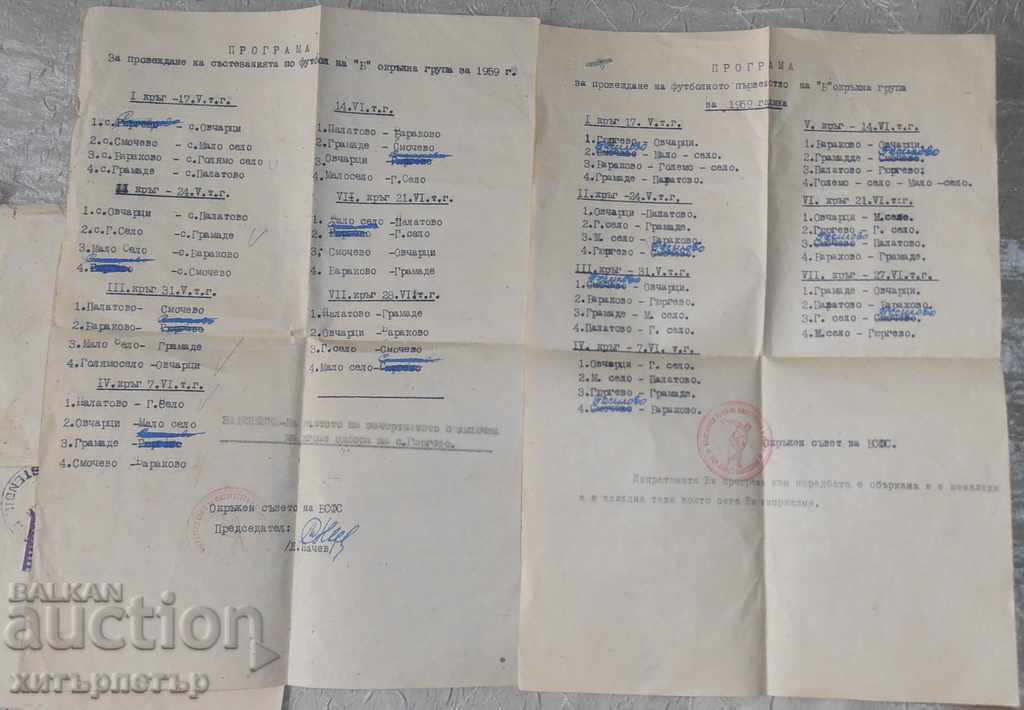 ПРОГРАМА
За провеждане на състезанията по футбол на "Б" окръжна група за 1959 г.
I кръг -17.V.т.г.
1.с. - с.Овчарци
2.с.Смочево - с.Мало село
3.с.Бараково - с.Голямо село
4.с.Грамаде - с.Палатово
II кръг - 24.V.т.г.
1.с.Овчарци - с.Палатово
2.с.Г.Село -с.Грамаде
3.Мало село -с.Бараково
4. -с.Смочево
III.кръг 31.V.т.г.
1.Палатово- Смочево
2.Бараково- Гюргево
3.Мало село- Грамаде
4.Голямосело -Овчарци
IV.кръг 7.VI.т.г.
1.Палатово- Г.село
2.Овчарци -Мало село
3.Грамаде -Гюргево
4.Смочево -Бараково
14.VI.т.г.
1.Палатово -Бараково
2.Грамаде -Смочево
3.Овчарци -Гюргево
4.Малосело -Г.Село
VII. кръг 21.VI.т.г.
1. Мало село -Палатово
2. -Г.село
3, Смочево -Овчарци
4. Бараково -Грамаде
VII.кръг 28.VI.т.г.
1.Палатово-Грамаде
2.Овчарци -Бараково
3.Г.село -Смочево
4.Мало село-Гюргево
на с.Гюргево.
Окръжен съвет на БСФС
Председател:
ПРОГРАМА
за провеждане на футболното първенство на "Б"окръжна група
за 1959 година
I кръг 17. V.т.г.
1.Гюргево - Овчарци.
2.Смочево Осиково - Мало - село.
3.Бараково - Големо - село.
4.Грамаде - Палатово.
II.кръг -24.V.т.г.
1.Овчарци -Палатово.
2.Г.село - Грамаде.
3.М. село - Бараково.
4.Гюргево - Смочево. Осиково
III.кръг - 31.V.т.г.
1.Смочево Осиково - Овчарци.
2.Бараково - Гюргево.
3.Грамаде - М. село.
4.Палатово - Г. село.
IV. кръг - 7.VI. т.г.
1.Овчарци - Г. село.
2.М. село - Палатово.
3.Гюргево - Грамаде.
4.Смочево Осиково - Бараково.
V. кръг - 14.VI.т.г.
1.Бараково - Овчарци.
2.Грамадде - Смочево. Осиково
3.Палатово - Гюргево;
4.Големо - село - Мало -село.
VI. кръг 21.VI.т.г.
1.Овчарци - М.село.
2.Гюргево - Г. село.
3.Смочево Осиково - Палатово.
4.Бараково - Грамаде.
VII. кръг - 27.VI.т.г.
1.Грамаде - Овчарци.
2.Палатово - Бараково.
3.Г. село - Смочево. Осиково
4.М.село - Гюргево.
Окръжен съвет на БСФС.
Изпратената Ви програма към наредбата е объркана и е невалидна
а е валидна тази която сега Ви изпращаме.
BALKAN
auction
хитърпетър